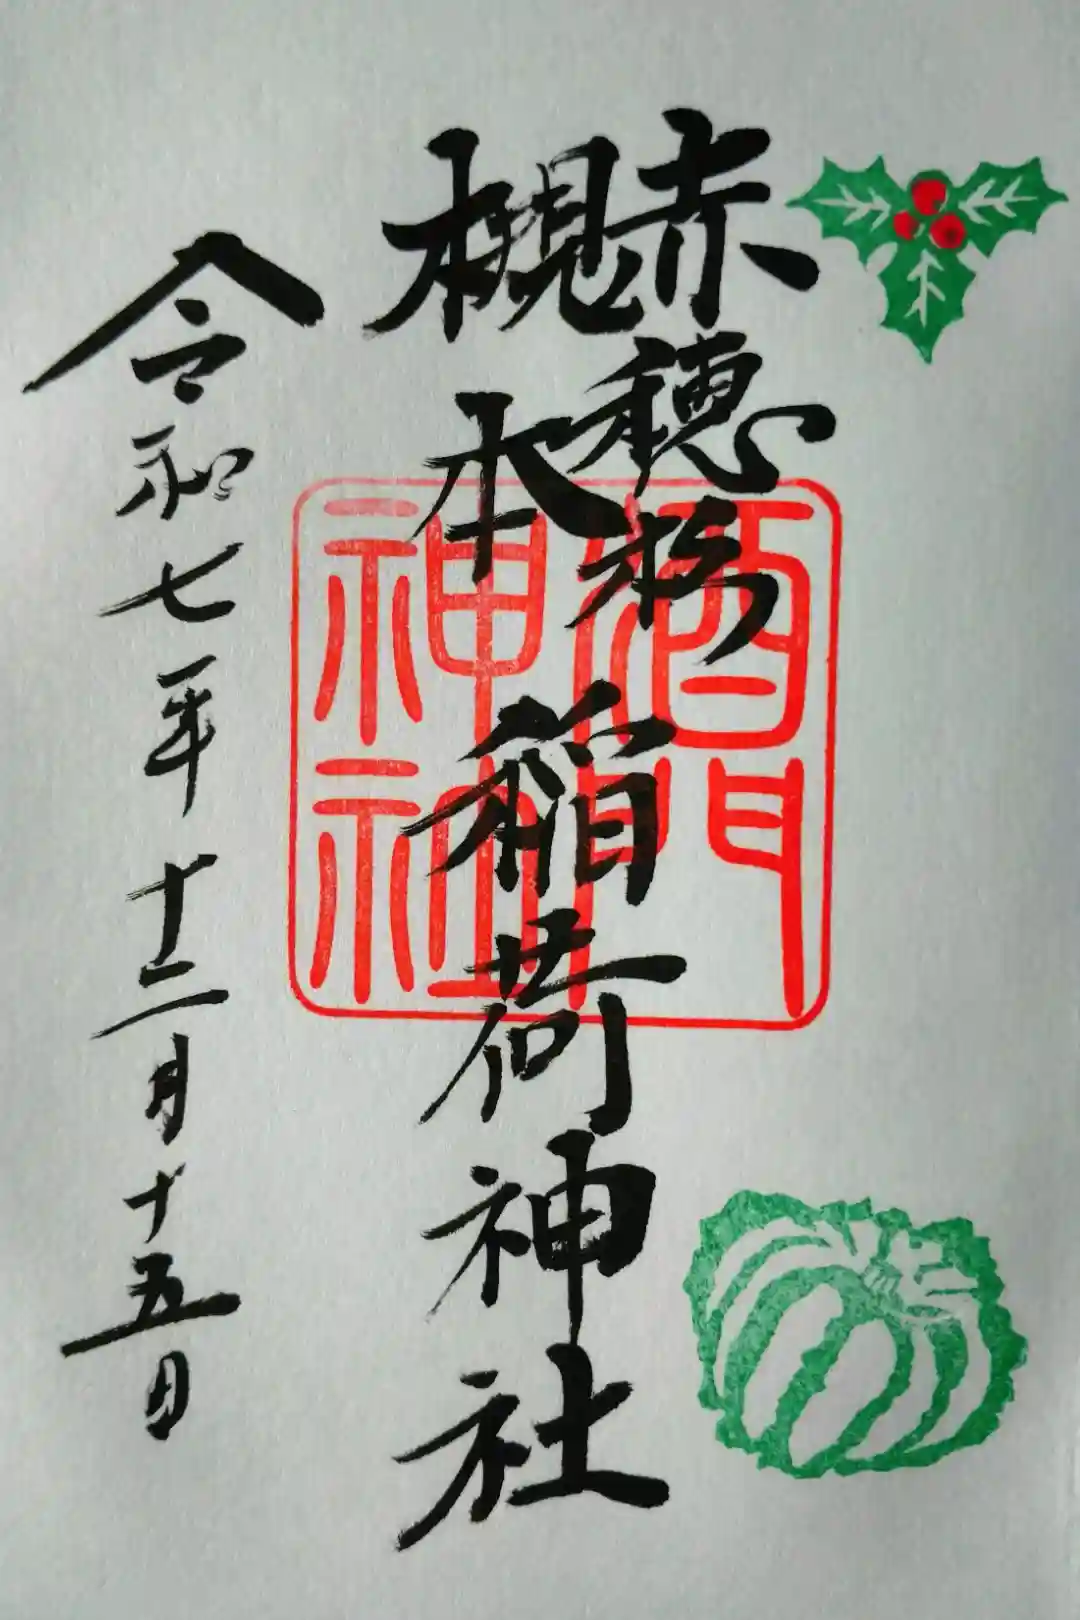 赤穂杉
槻本稲荷神社
酒門
神社
令和七年十二月十五日